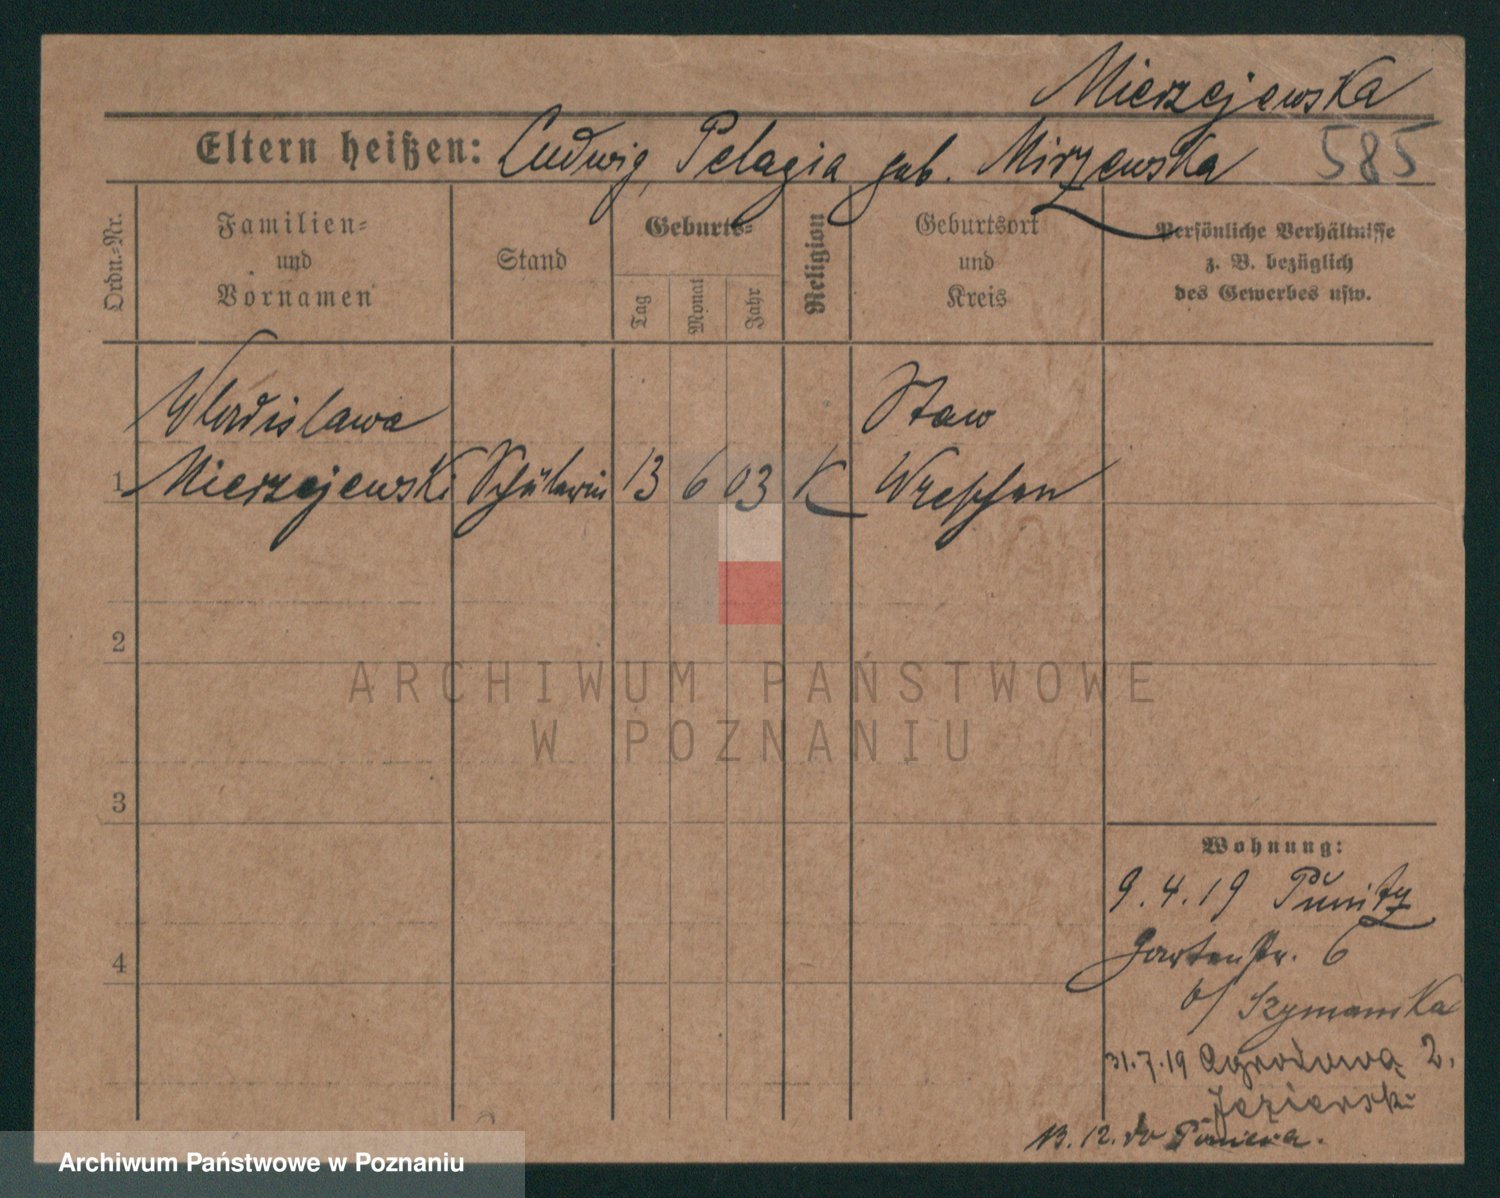 Mierzejewska
Eltern heißen: Ludwig, Pelagia geb. Mirzewska 585
Ordn.-Nr.
Familien-
und
Vornamen
Stand
Geburts-
Tag
Monat
Jahr
Religion
Geburtsort
und
Kreis
Persönliche Verhältnisse
z. B. bezüglich
des Gewerbes usw.
Wladislawa Staw
1 Mierzejewski Schülerin 13 6 03 K Wreschen
2
ARCHIWUM PAŃSTWOWE
W POZNANIU
3
Wohnung:
9.4.19 Punitz
Gartenstr. 6
4
b/ Szymanska
31.7.19 Ogrodowa 2.
Jezierski
13.12. do
Archiwum Państwowe w Poznaniu